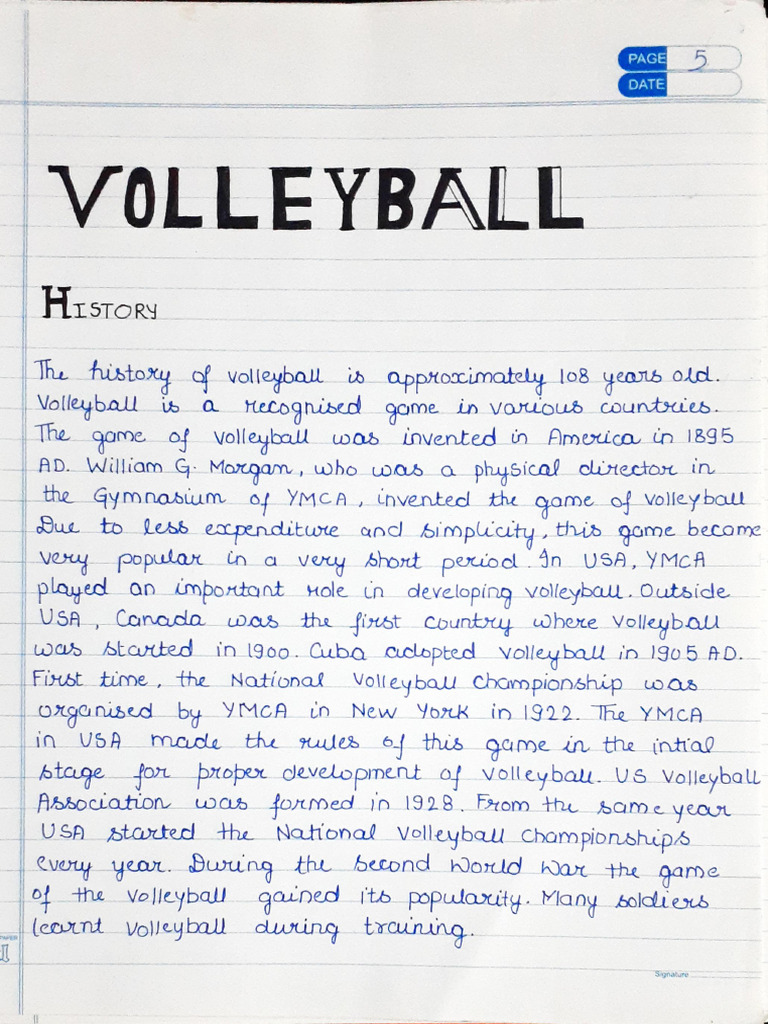 PAGE 5
DATE
VOLLEYBALL
HISTORY
The history of volleyball is approximately 108 years old.
Volleyball is a recognised game in various countries.
The game of volleyball was invented in America in 1895
AD. William G. Morgan, who was a physical director in
the Gymnasium of YMCA, invented the game of volleyball
Due to less expenditure and simplicity, this game become
very popular in a very short period. In USA, YMCA
played an important role in developing volleyball. Outside
USA, Canada was the first country where volleyball
was started in 1900. Cuba adopted volleyball in 1905 AD.
First time, the National Volleyball Championship was
organised by YMCA in New York in 1922. The YMCA
in USA made the rules of this game in the intial
stage for proper development of volleyball. US Volleyball
Association was formed in 1928. From the same year
USA started the National Volleyball Championships
every year. During the Second World War the game
of the volleyball gained its popularity. Many soldiers
learnt volleyball during training.
Signature